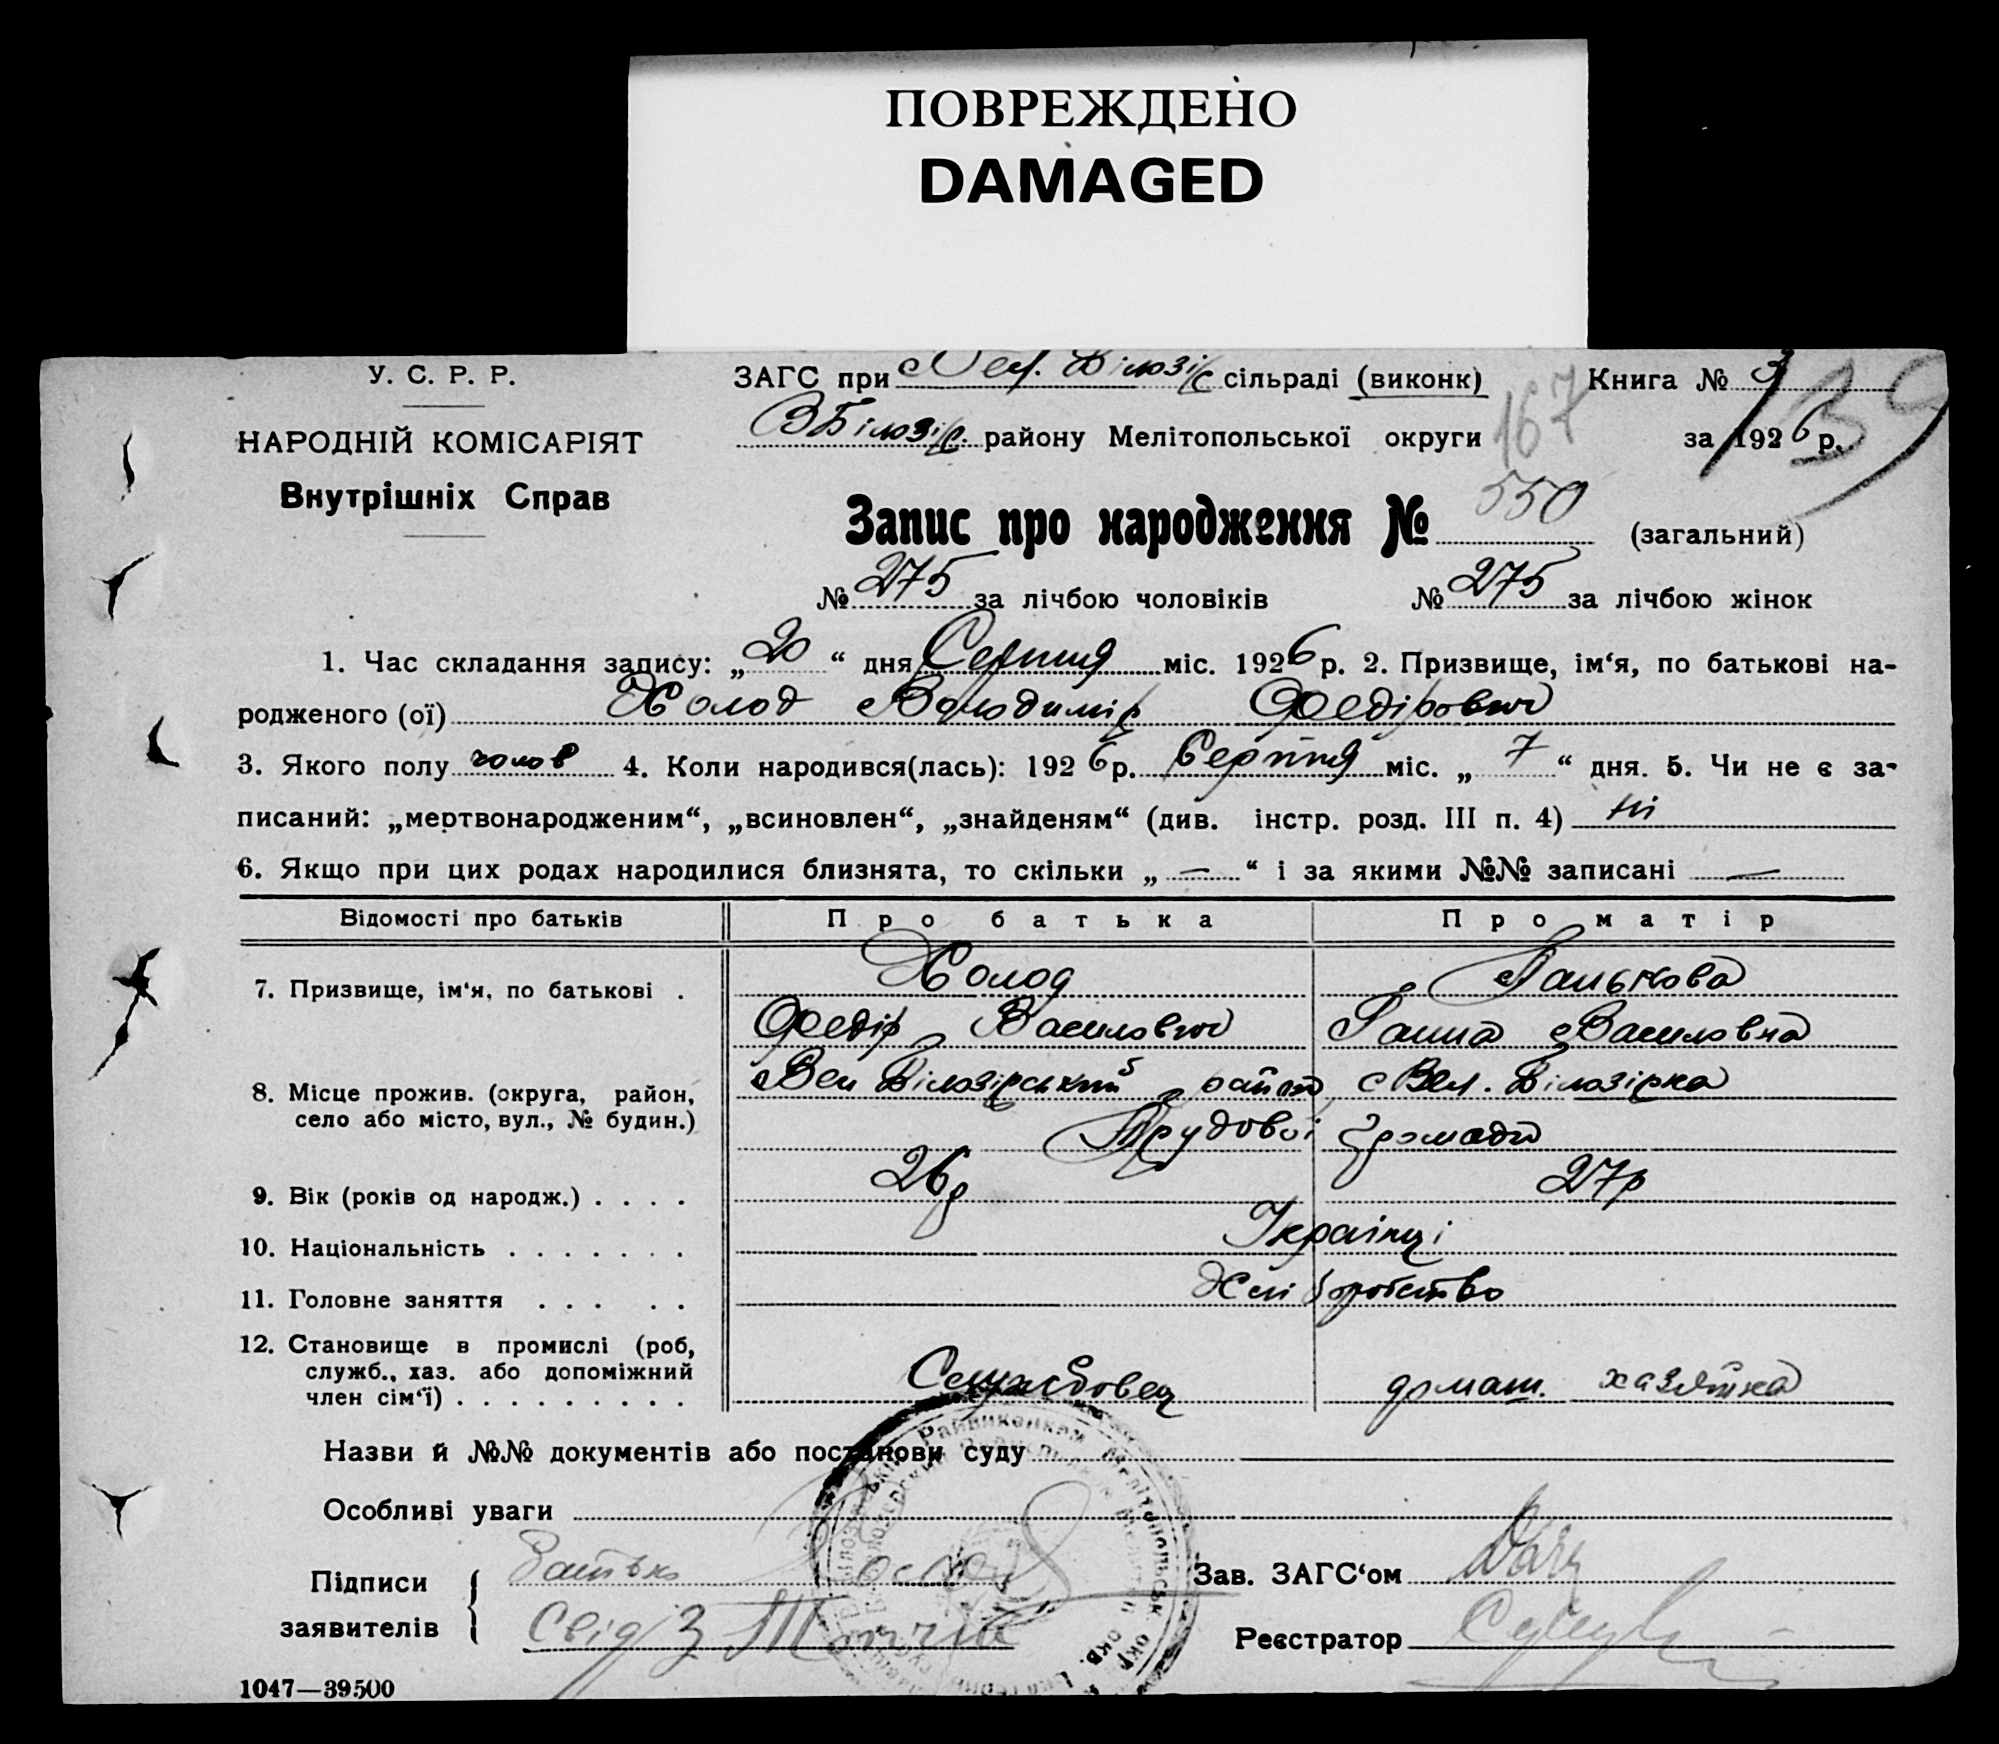 ПОВРЕЖДЕНО
DAMAGED
У. С. Р. Р.
НАРОДНІЙ КОМІСАРІЯТ
Внутрішніх Справ
ЗАГС при Вел. Білозір сільраді (виконк) Книга № 3
ВБілозір. району Мелітопольської округи 167 за 1926 р. 139
Запис про народження № 550 (загальний)
№ 275 за лічбою чоловіків № 275 за лічбою жінок
1. Час складання запису: „20“ дня Серпня міс. 1926 р. 2. Призвище, ім‘я, по батькові на-
родженого (ої) Холод Володимір Федірович
3. Якого полу чолов 4. Коли народився(лась): 1926 р. Серпня міс. „7“ дня. 5. Чи не є за-
писаний: „мертвонародженим“, „всиновлен“, „знайденям“ (див. інстр. розд. III п. 4) ні
6. Якщо при цих родах народилися близнята, то скільки „—“ і за якими №№ записані —
Відомості про батьків Про батька Про матір
7. Призвище, ім‘я, по батькові . Холод Панькова
Федір Василович Ганна Василовна
8. Місце прожив. (округа, район, Вел Білозірський район с Вел. Білозірка
село або місто, вул., № будин.) Трудової громади
9. Вік (років од народж.) . . . . 26р 27р
10. Національність . . . . . . . Українці
11. Головне заняття . . . . . Хліборобство
12. Становище в промислі (роб,
служб., хаз. або допоміжний
член сім‘ї) . . . . . . . . . Службовец домаш. хазяйка
Назви й №№ документів або постанови суду
Особливі уваги
Підписи Батько
заявителів Свід
Зав. ЗАГС‘ом
Реєстратор
1047—39500